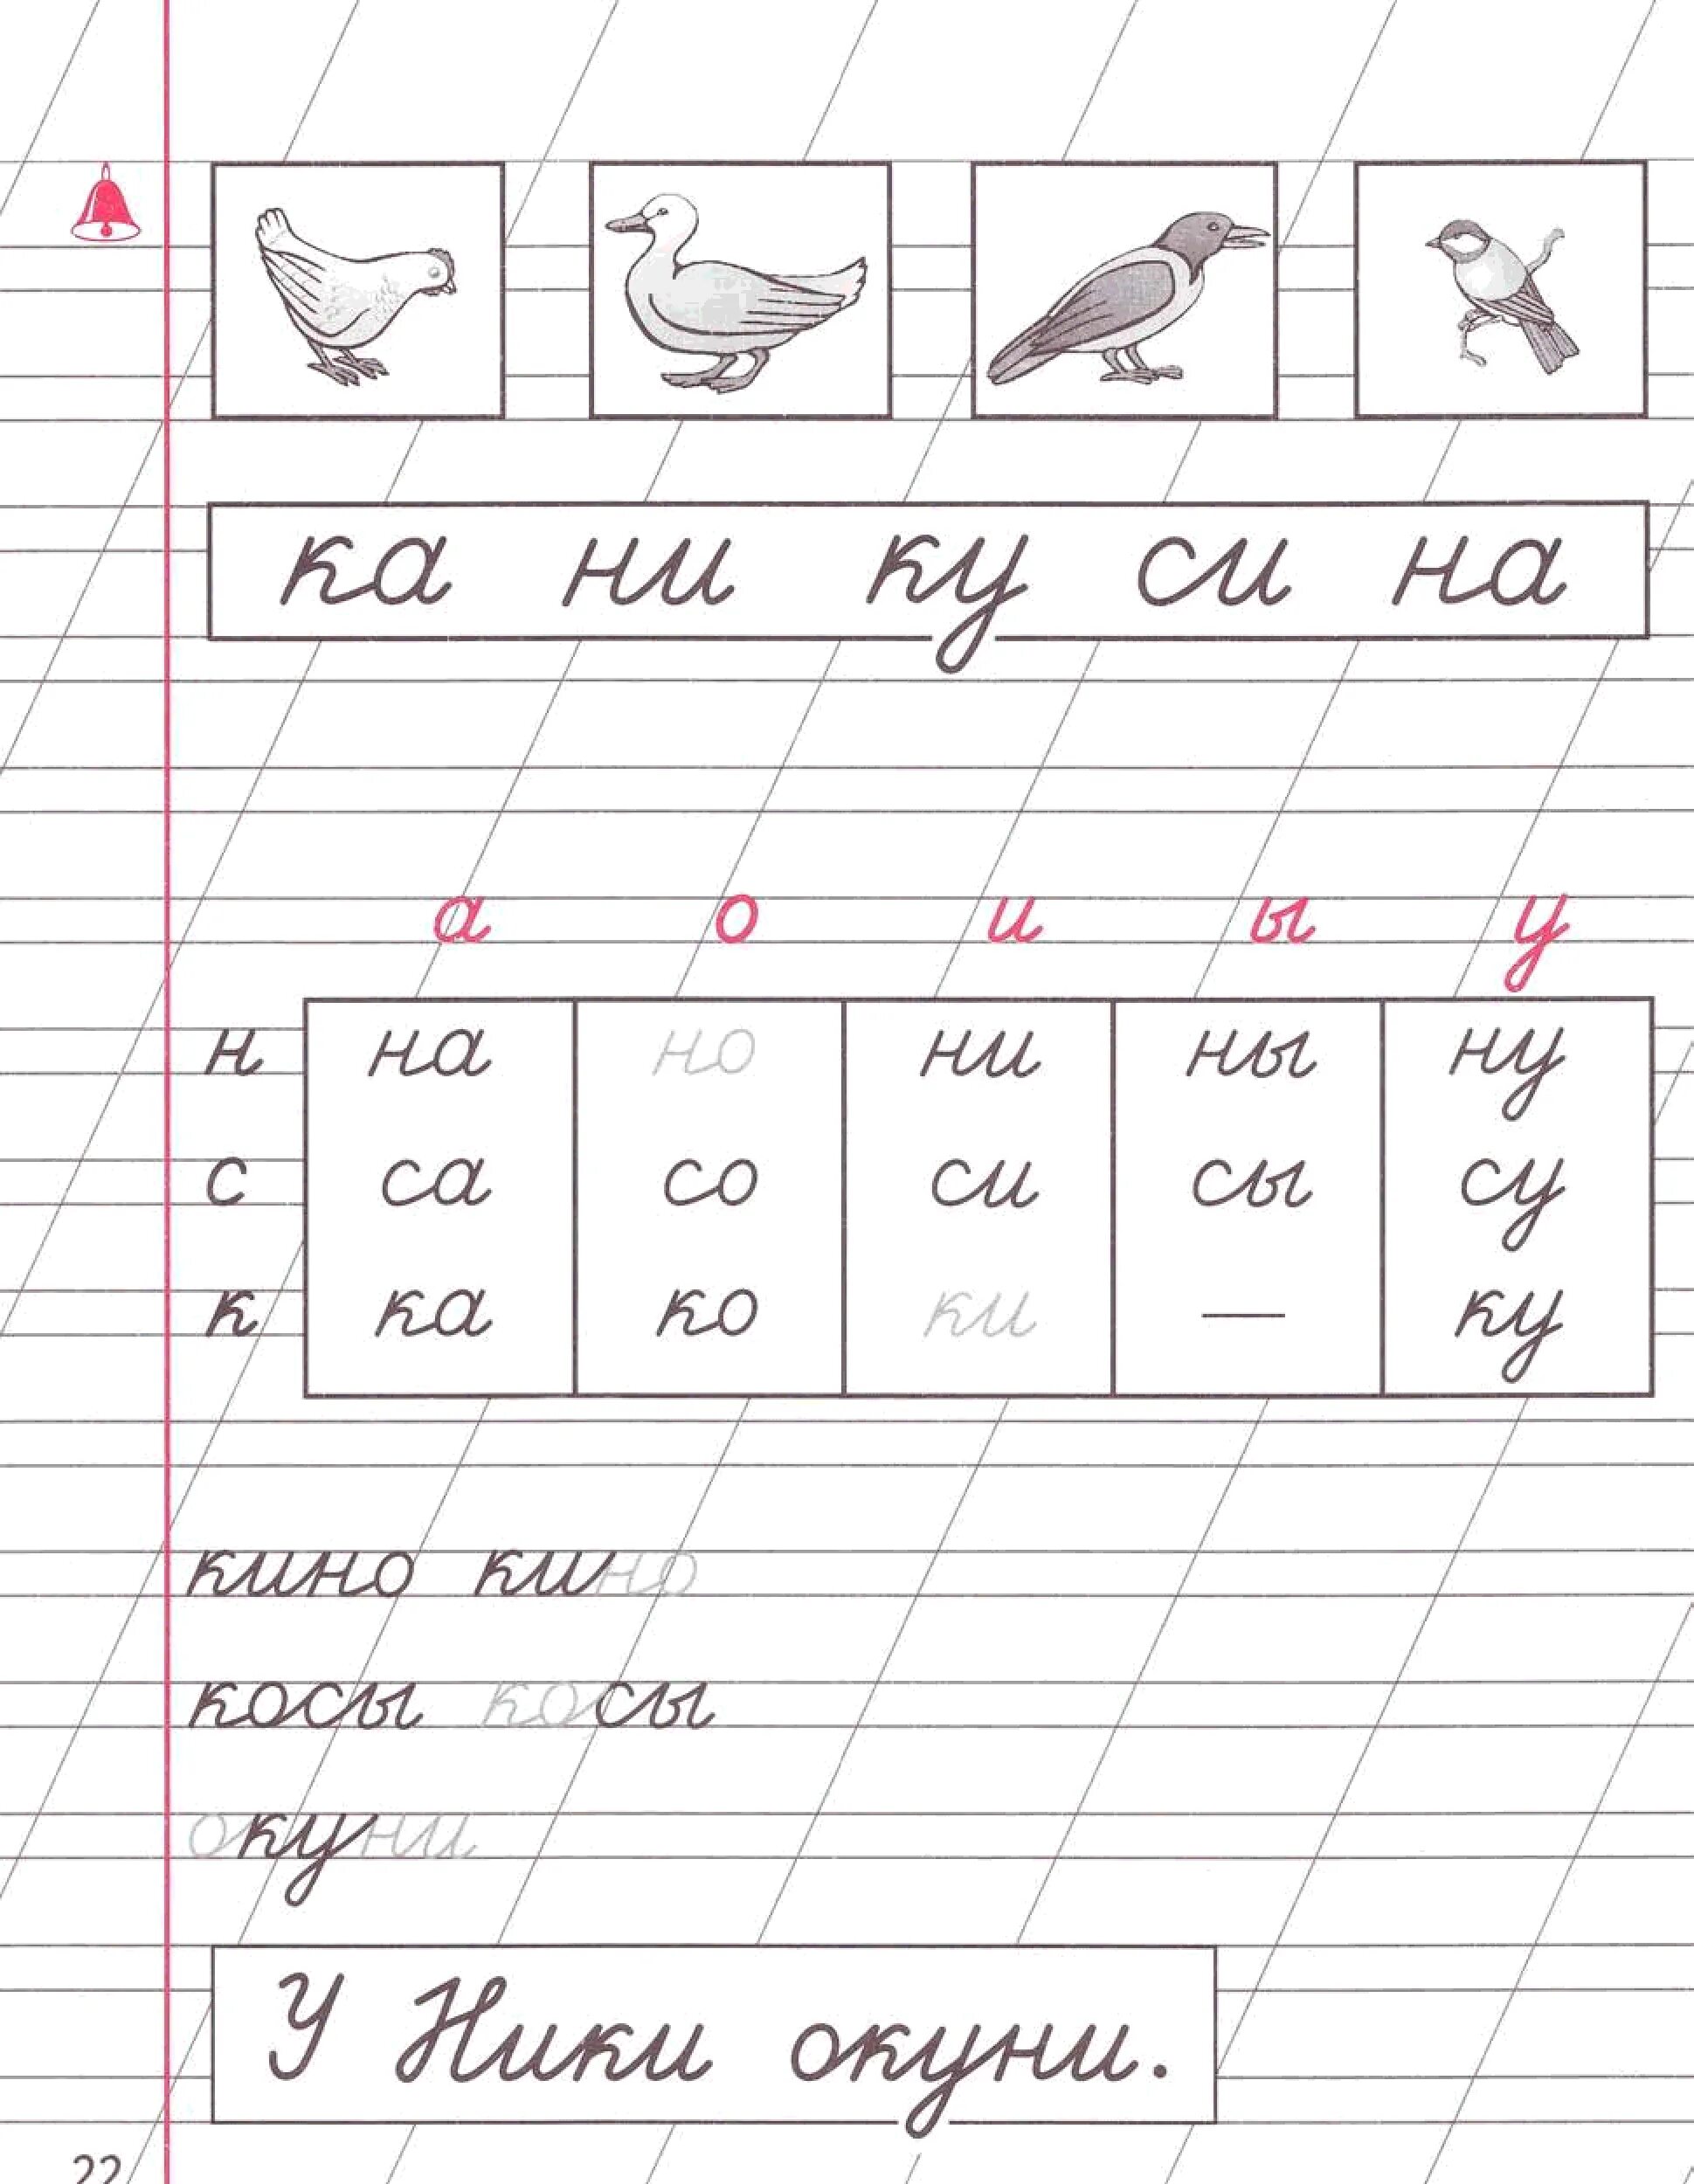 ка ни ку си на
а о и ы у
н на но ни ны ну
с са со си сы су
к ка ко ки — ку
кино кино
косы косы
окуни
У Ники окуни.
22